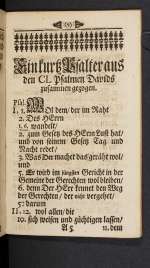 Ein kurtz Psalter aus
den CL Psalmen Davids
zusammen gezogen.
Psal.
I. 1. WOl dem/ der im Raht
2. Des HErrn
1,6. wandelt/
2. zum Gesetz des HErrn Lust hat/
und von seinem Gesetz Tag und
Nacht redet/
3. Was Der machet das geräht wol/
und
5. Er wird im jüngsten Gericht in der
Gemeine der Gerechten wol bleiben/
6. denn Der HErr kennet den Weg
der Gerechten/ der nicht vergehet/
5: darum
II: 12. wol allen/ die
10. sich weisen und züchtigen lassen/
A 5 11. dem